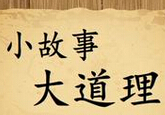 小故事
大道理